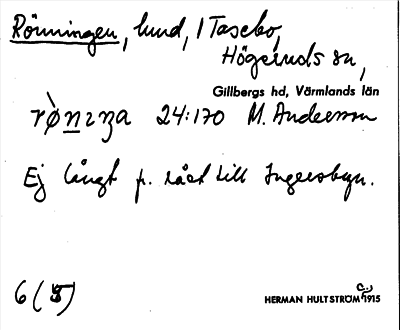 Rönningen, lund, 1 Tasebo,
Högeruds sn,
Gillbergs hd, Värmlands län
24:170 M. Andersson
Ej långt fr. rået till Ingersbyn.
6 (5)
HERMAN HULTSTRÖM C:a 1915